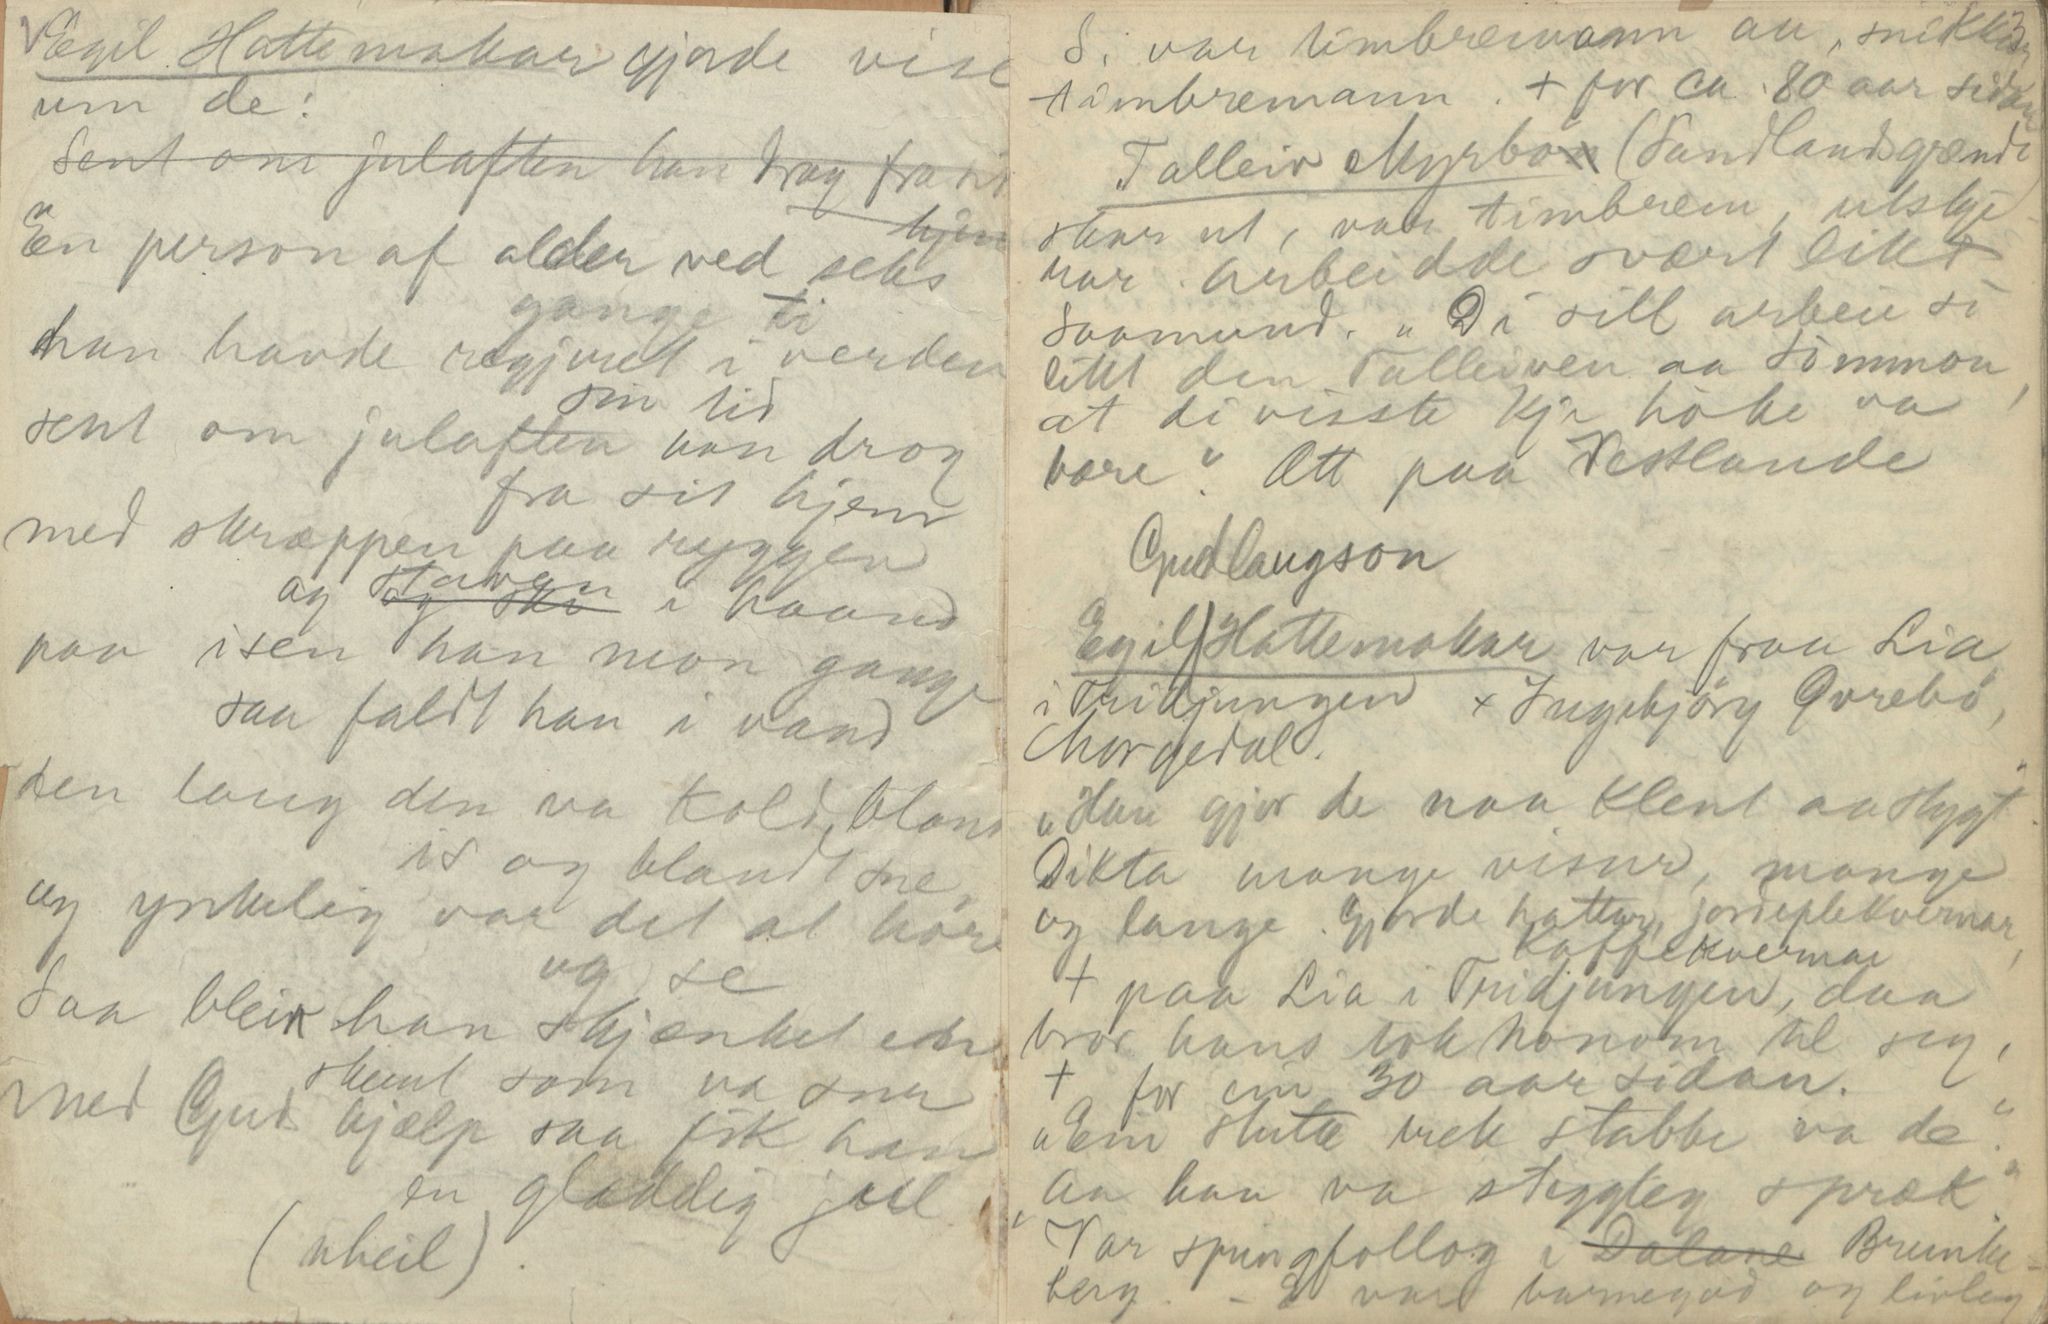 Egil Hattemakar gjorde vise
um de:
Sent om julaften han drog fra sit
hjem
"En person af alder ved seks
gange ti
han havde regjeret i verden
sin tid
sent om julaften han drog
fra sit hjem
med skræppen paa ryggen
og staven i haand
paa isen han mon gange
saa faldt han i vand
den laug den va kold, bland
is og blandt sne,
og ynkelig var det at høre
og se
Saa bleiv han skjænket
skjent som va snu
med Gud hjælp saa fik han
en gladdig jul
(uheil).
S. var timbremann au, snikkar
timbremann. + for ca. 80 aar sidan
Talleiv Myrbø (Sandlandsgrænd)
skar ut, var timbrem, utskje-
rar. Arbeidde svært likt
Saamund. "Di sill arbeie si
likt den Talleiven aa Sømmon,
at di visste kje høke va
være." Ått paa Vestlande
Gudlaugson
Egil Hattemakar var fraa Lia
i Tridjungen x Ingebjørg Øvrebø,
Morgedal.
"Han gjor de naa klent aa stygt"
Dikta mange visur, mange
og lange. Gjorde hattar, jordeplekvernar,
kaffekvernar
+ paa Lia i Tridjungen, daa
bror hans tok honom til seg,
+ for ein 30 aar sidan.
"Ein stutte vrek stabbe va de."
"Aa han va styggleg spræk."
Var springfollog i Dalane Brunke-
berg. - E var barnegod og livleg